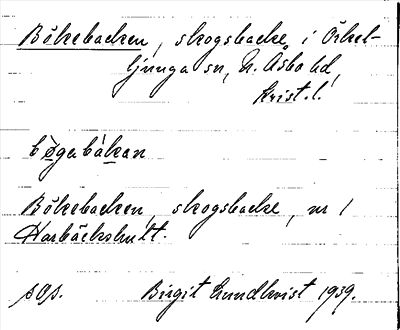 Bökebacken, skogsbacke i Örkel-
ljunga sn, N. Åsbo hd,
Krist. l.
bøgabakan
Bökebacken, skogsbacke, nr 1
Harbäckshult.
sOp. Birgit Lundkvist 1939.